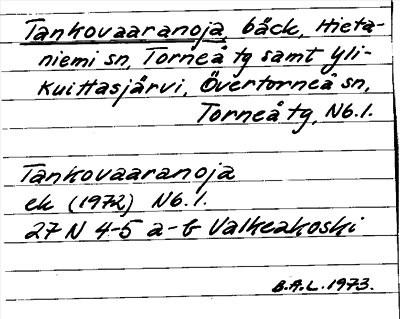 Tankovaaranoja, bäck, Hieta-
niemi sn, Torneå tg samt Yli-
Kuittasjärvi, Övertorneå sn,
Torneå tg, Nb.l.
Tankovaaranoja
ek (1972) Nb.l.
27 N 4-5 a-b Valkeakoski
B.A.L. 1973.